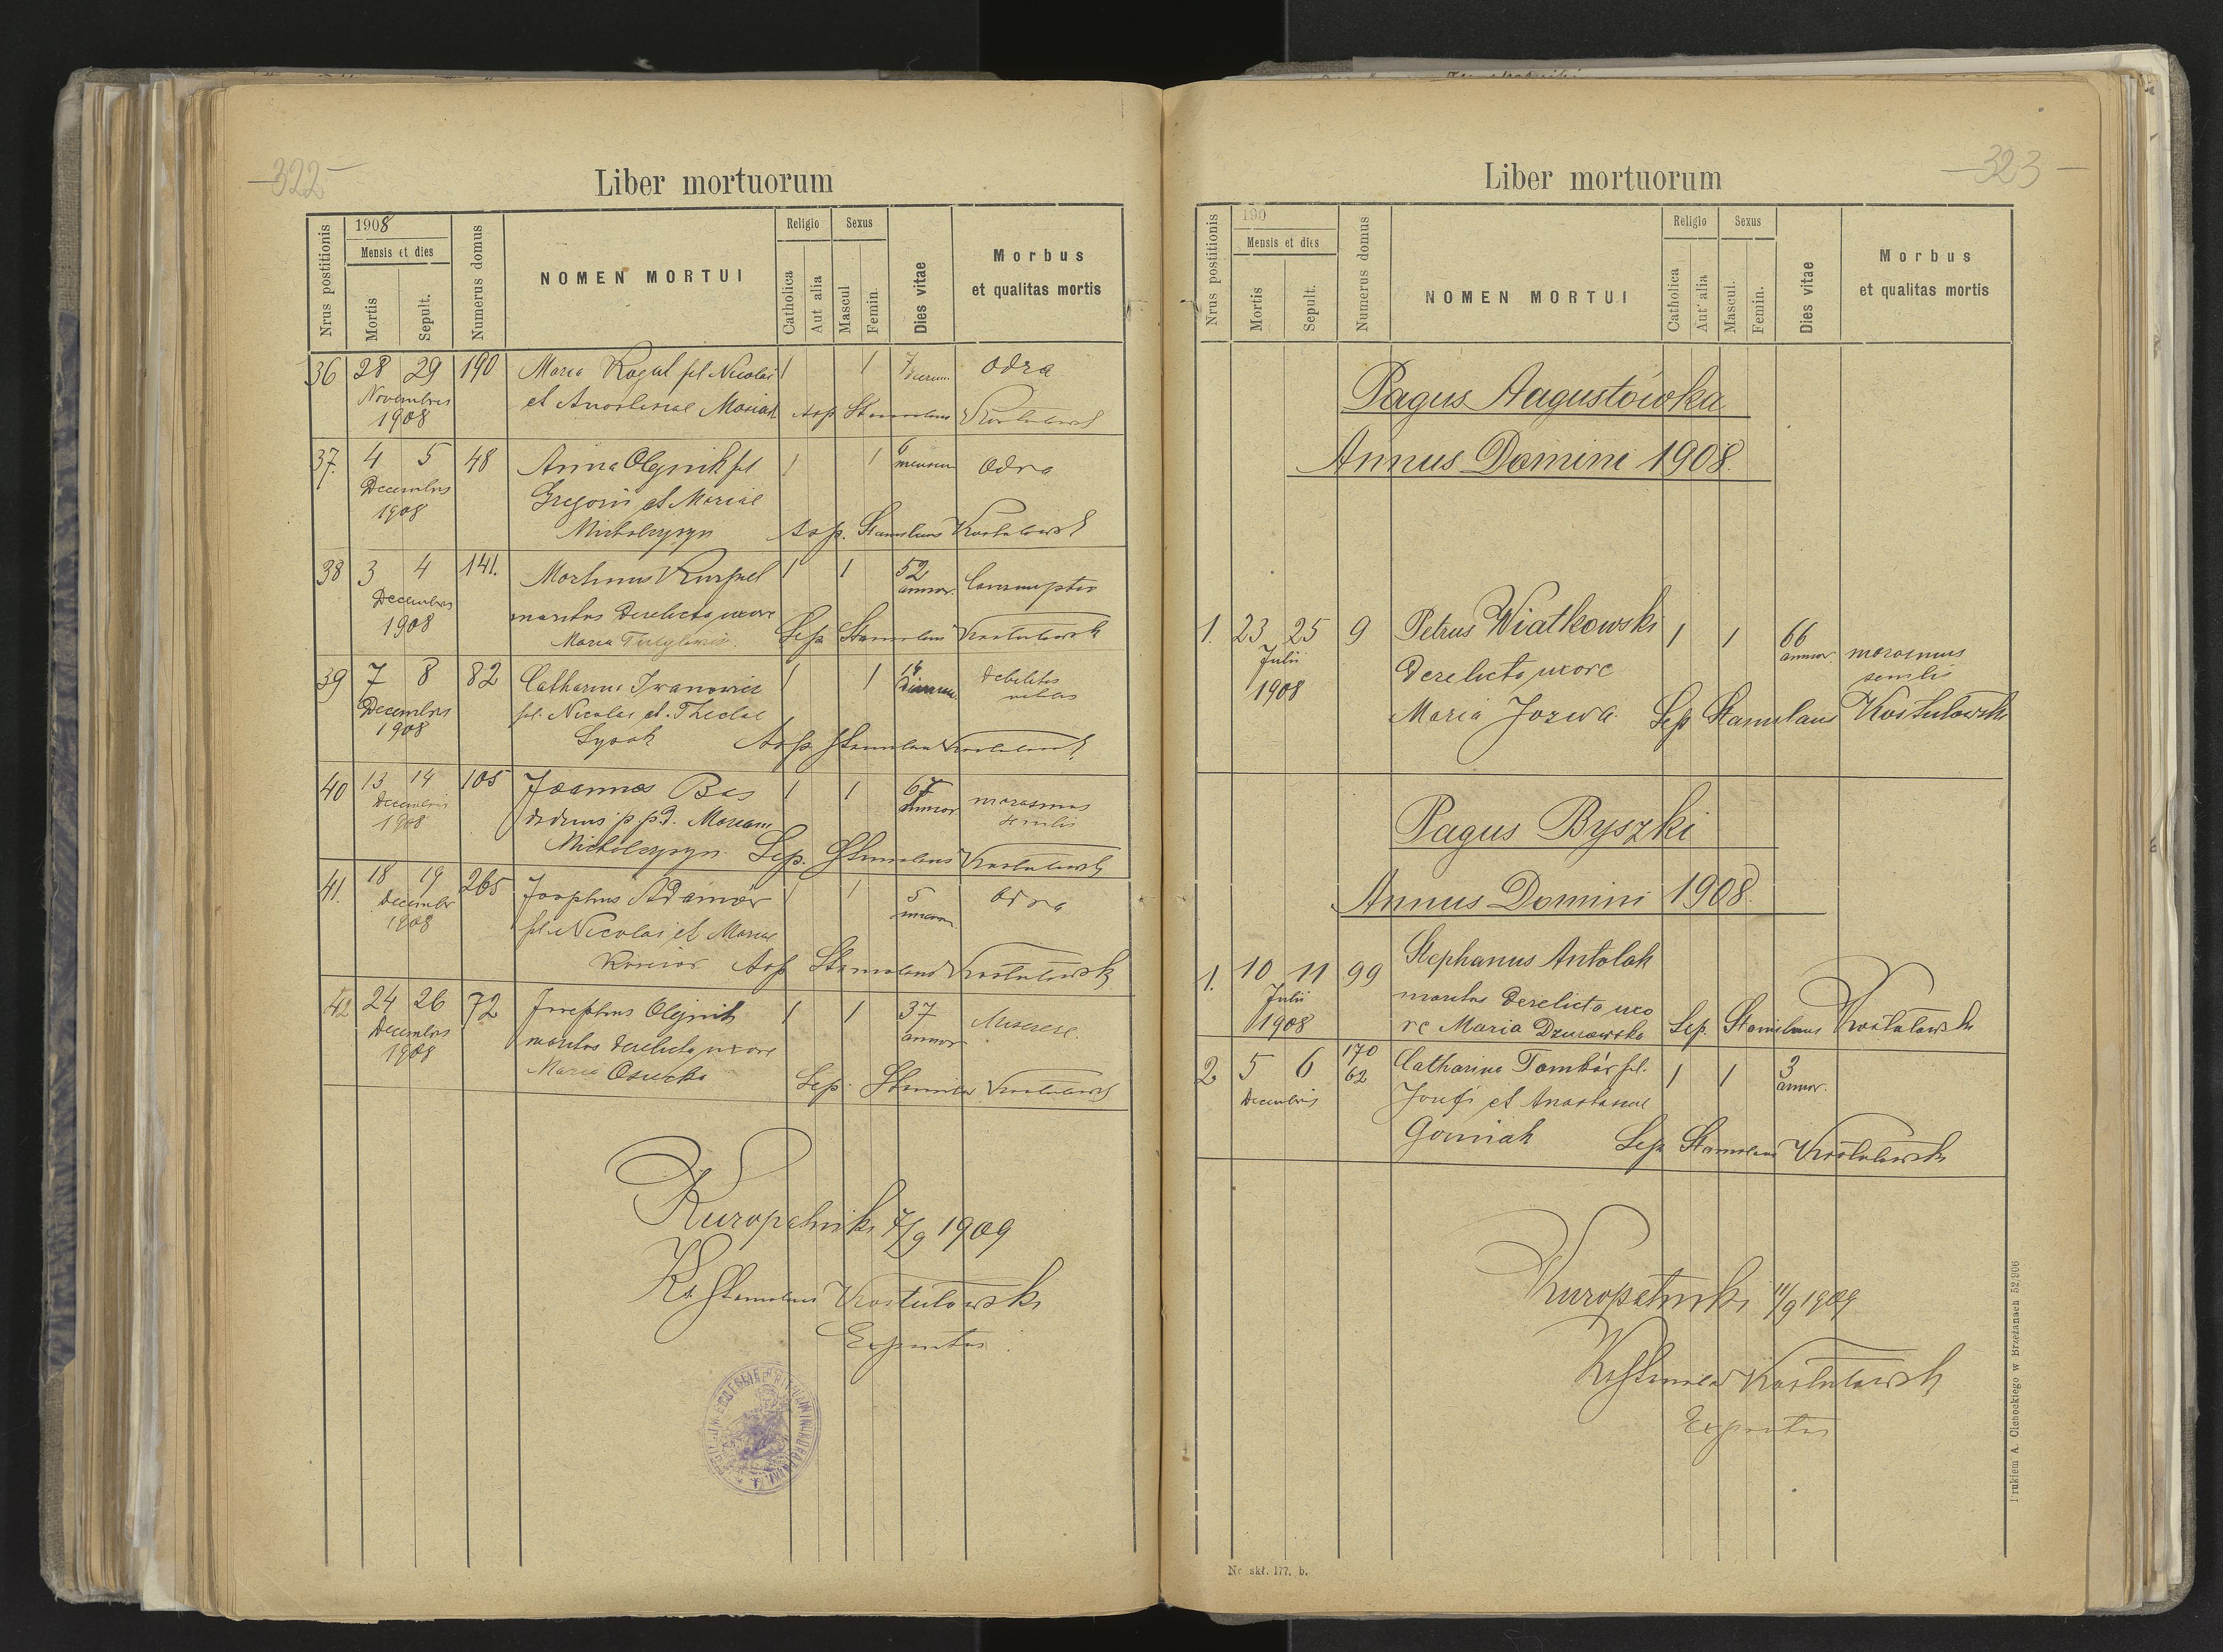 322
Liber mortuorum
Nrus postitionis
1908
Mensis et dies
Mortis
Sepult.
Numerus domus
NOMEN MORTUI
Religio
Catholica
Aut alia
Sexus
Mascul
Femin.
Dies vitae
Morbus
et qualitas mortis
36 28 29 190 Maria Rogul fil Nicolai 1 1 7 odra
Novembris et Mariak Asp Stanislaus Kostulowski
1908
37. 4 5 48 Anna Olejnik fil 1 1 6 mensium odra
Decembris Gregorii et Mariae
1908
Asp. Stanislaus Kostulowski
38 3 4 141. Martinus Kurpiel 1 1 52 annor. Consumptio
Decembris maritus derelicta uxore
1908 Maria Sep Stanislaus Kostulowski
39 7 8 82 Catharina Iwanowicz 1 1 14 dierum debilitas
Decembris fil. Nicolai et Theclae
1908 Asp Stanislaus Kostulowski
40 13 14 105 Joannes Bas 1 1 67 annor marasmus senilis
Decembris viduus p. p. d. Mariam
1908 Sep. Stanislaus Kostulowski
41. 18 19 265 Josephus Adamów 1 1 5 odra
Decembr fil. Nicolai et Mariae
1908 Asp Stanislaus Kostulowski
42 24 26 72 Josephus Olejnik 1 1 37 annor Miserere.
Decembris maritus derelicta uxore
1908 Maria Osiecka Sep. Stanislaus Kostulowski
Kuropatniki 7/9 1909
Ks Stanislaus Kostulowski
Expositus
323
Liber mortuorum
Nrus postitionis
190
Mensis et dies
Mortis
Sepult.
Numerus domus
NOMEN MORTUI
Religio
Catholica
Aut alia
Sexus
Mascul.
Femin.
Dies vitae
Morbus
et qualitas mortis
Pagus Augustówka
Annus Domini 1908.
1. 23 25 9 Petrus Wiatkowski 1 1 66 annor. marasmus senilis
Julii derelicta uxore
1908 Maria Jozwa. Sep Stanislaus Kostulowski
Pagus Byszki
Annus Domini 1908.
Stephanus Antolak
1. 10 11 99 maritus derelicta uxo
Julii
1908 re Maria Dzurowska Sep. Stanislaus Kostulowski
2 5 6 170 62 Catharina Tombór fil. 1 1 3 annor.
Decembris Josefi et Anastasiae
Gorniak Sep Stanislaus Kostulowski
Kuropatniki 11/9 1909
Ks Stanislaus Kostulowski
Expositus
Drukiem A. Cichockiego w Brzeżanach 52,906
Nr skł. 177. b.